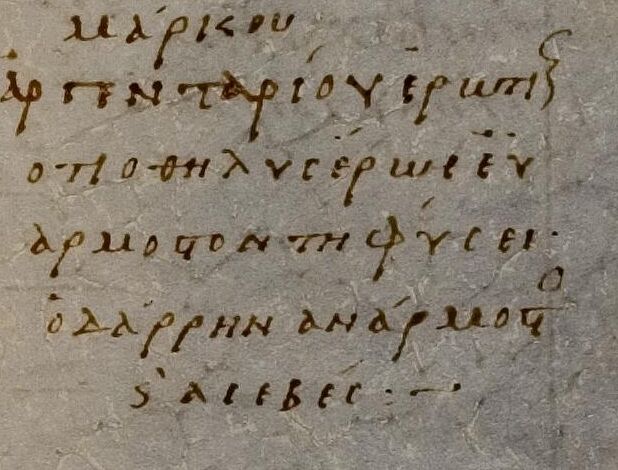 μάρκου
ἀργενταρίου ἐρωτι
ὅτι ὁ θῆλυς ἔρως εὐ
αρμοστον τῆ φύσει·
ὁ δ ἄρρην ἀνάρμοστο
ϛ ἀσεβές :–